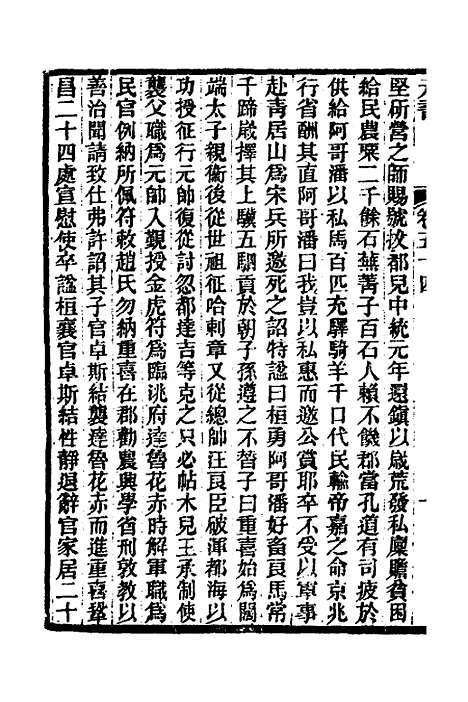 堅所營之師賜號拔都兒中統元年還鎮以歲荒發私廩贍貧困
給民農粟二千餘石蕪菁子百石人賴不饑郡當孔道有司疲於
供給阿哥潘以私馬百匹充驛騎羊千口代民輸帝嘉之命京兆
行省酬其直阿哥潘曰我豈以私惠而邀公賞耶卒不受以軍事
赴青居山為宋兵所邀死之詔特諡曰桓勇阿哥潘好畜良馬常
千蹄歲擇其上驥五駟貢於朝子孫遵之不替子曰重喜始為闊
端太子親衛後從世祖征哈剌章又從總帥汪良臣破渾都海以
功授征行元帥從討忽都達吉等克之只必帖木兒王承制使
襲父職為元帥入覲授金虎符為臨洮府達魯花赤時解軍職為
民官例納所佩符敕趙氏勿納重喜在郡勸農興學省刑敦教以
善治聞請致仕弗許詔其子官卓斯結襲達魯花赤而進重喜鞏
昌二十四處宣慰使卒諡桓襄官卓斯結性靜退辭官家居二十